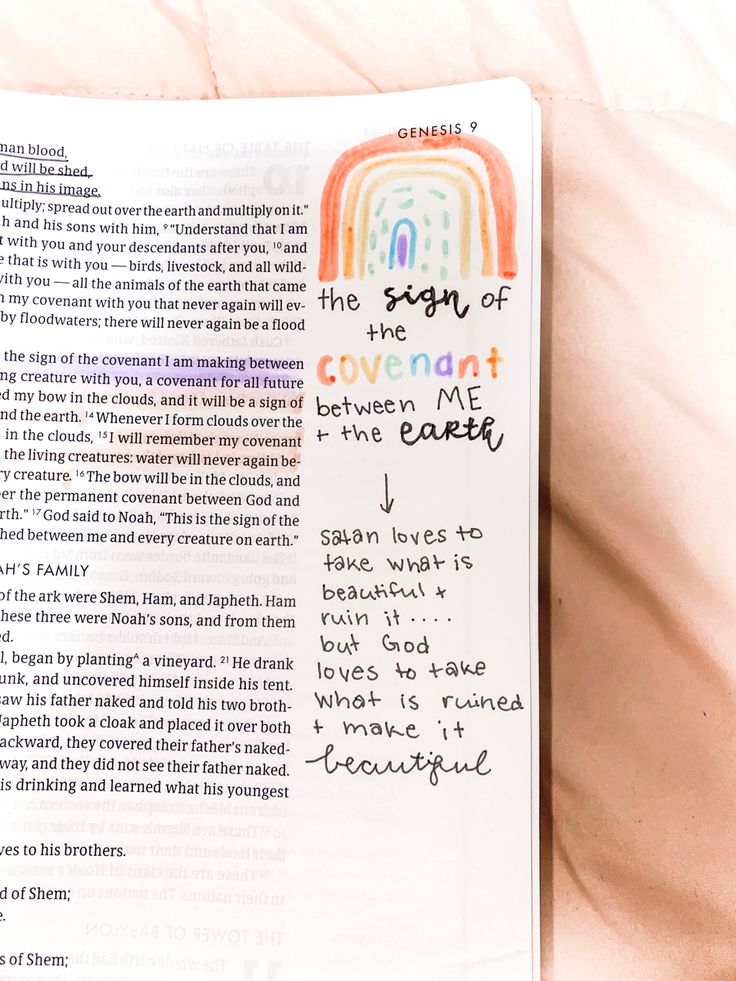 GENESIS 9
man blood,
d will be shed,
ns in his image.
ultiply; spread out over the earth and multiply on it.”
h and his sons with him, ⁹ “Understand that I am
t with you and your descendants after you, ¹⁰ and
e that is with you — birds, livestock, and all wild-
with you — all the animals of the earth that came
n my covenant with you that never again will ev-
by floodwaters; there will never again be a flood
the sign of the covenant I am making between
ng creature with you, a covenant for all future
ed my bow in the clouds, and it will be a sign of
nd the earth. ¹⁴ Whenever I form clouds over the
in the clouds, ¹⁵ I will remember my covenant
the living creatures: water will never again be-
ry creature. ¹⁶ The bow will be in the clouds, and
er the permanent covenant between God and
rth.” ¹⁷ God said to Noah, “This is the sign of the
hed between me and every creature on earth.”
AH’S FAMILY
of the ark were Shem, Ham, and Japheth. Ham
hese three were Noah’s sons, and from them
ed.
l, began by plantingᴬ a vineyard. ²¹ He drank
unk, and uncovered himself inside his tent.
saw his father naked and told his two broth-
Japheth took a cloak and placed it over both
ackward, they covered their father’s naked-
way, and they did not see their father naked.
is drinking and learned what his youngest
ves to his brothers.
d of Shem;
e.
s of Shem;
the sign of
the
covenant
between ME
+ the earth
satan loves to
take what is
beautiful +
ruin it ....
but God
loves to take
what is ruined
+ make it
beautiful